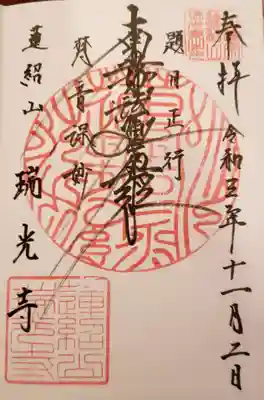 奉拝 令和三年十一月二日
題目正行
南無妙法蓮華経
梵音深妙
蓮紹山 瑞光寺